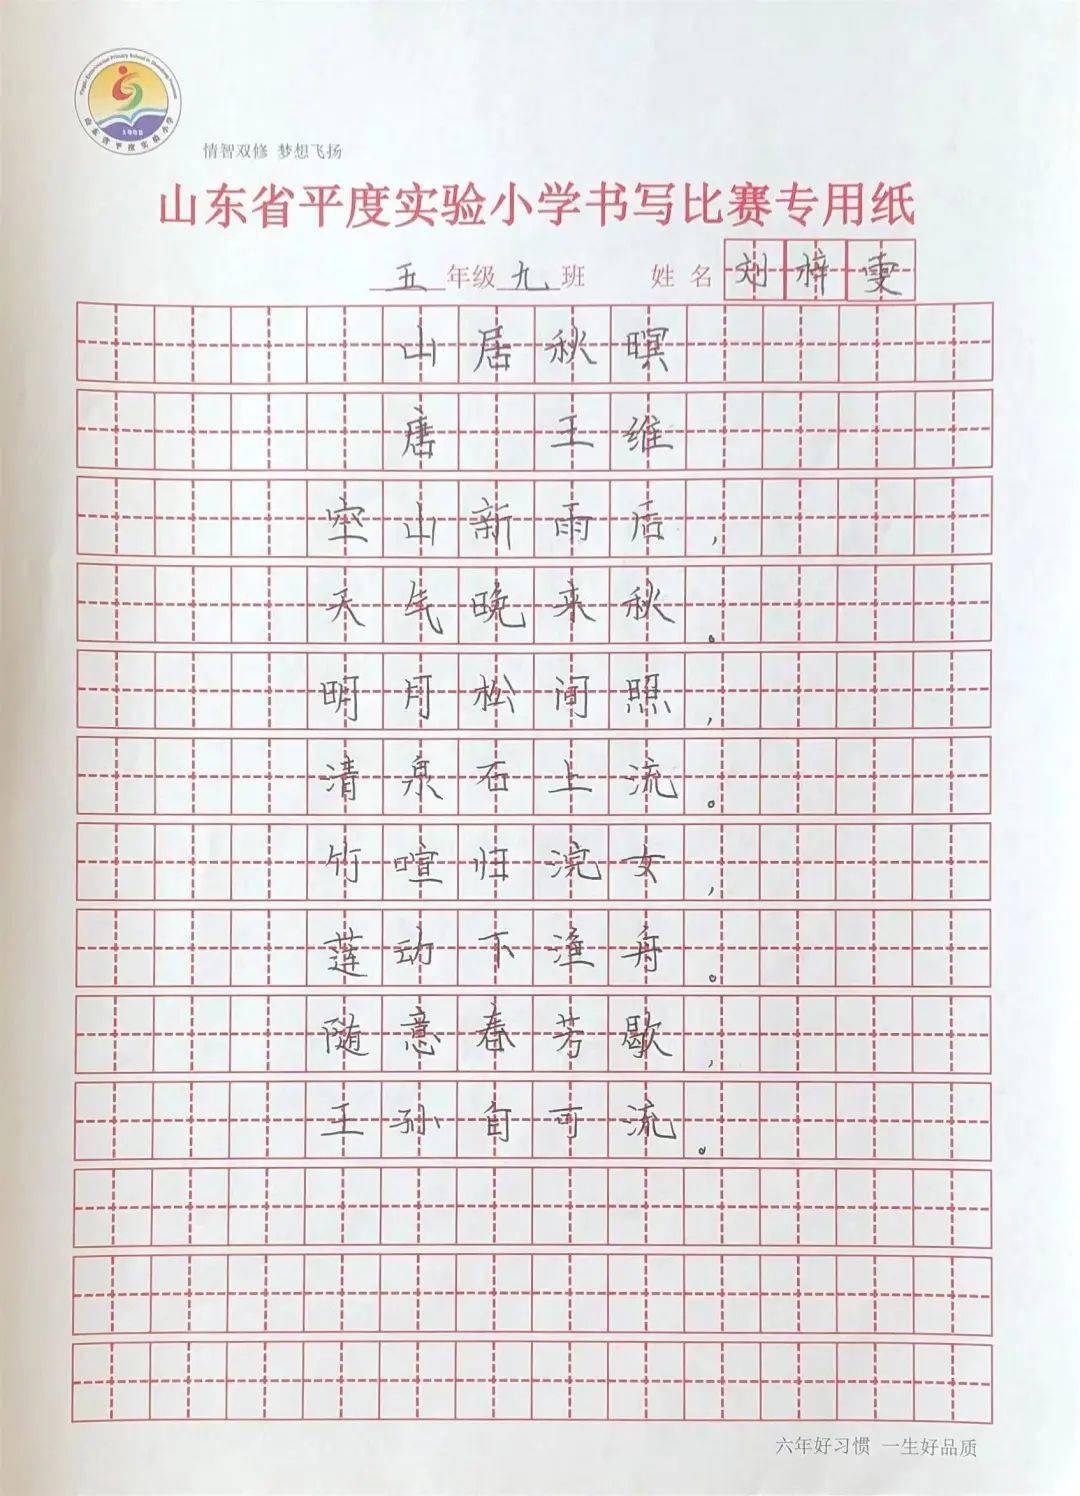 山东省平度实验小学
1998
情智双修 梦想飞扬
山东省平度实验小学书写比赛专用纸
五年级九班 姓名 刘梓雯
山居秋暝
唐 王维
空山新雨后，
天气晚来秋。
明月松间照，
清泉石上流。
竹喧归浣女，
莲动下渔舟。
随意春芳歇，
王孙自可流。
六年好习惯 一生好品质